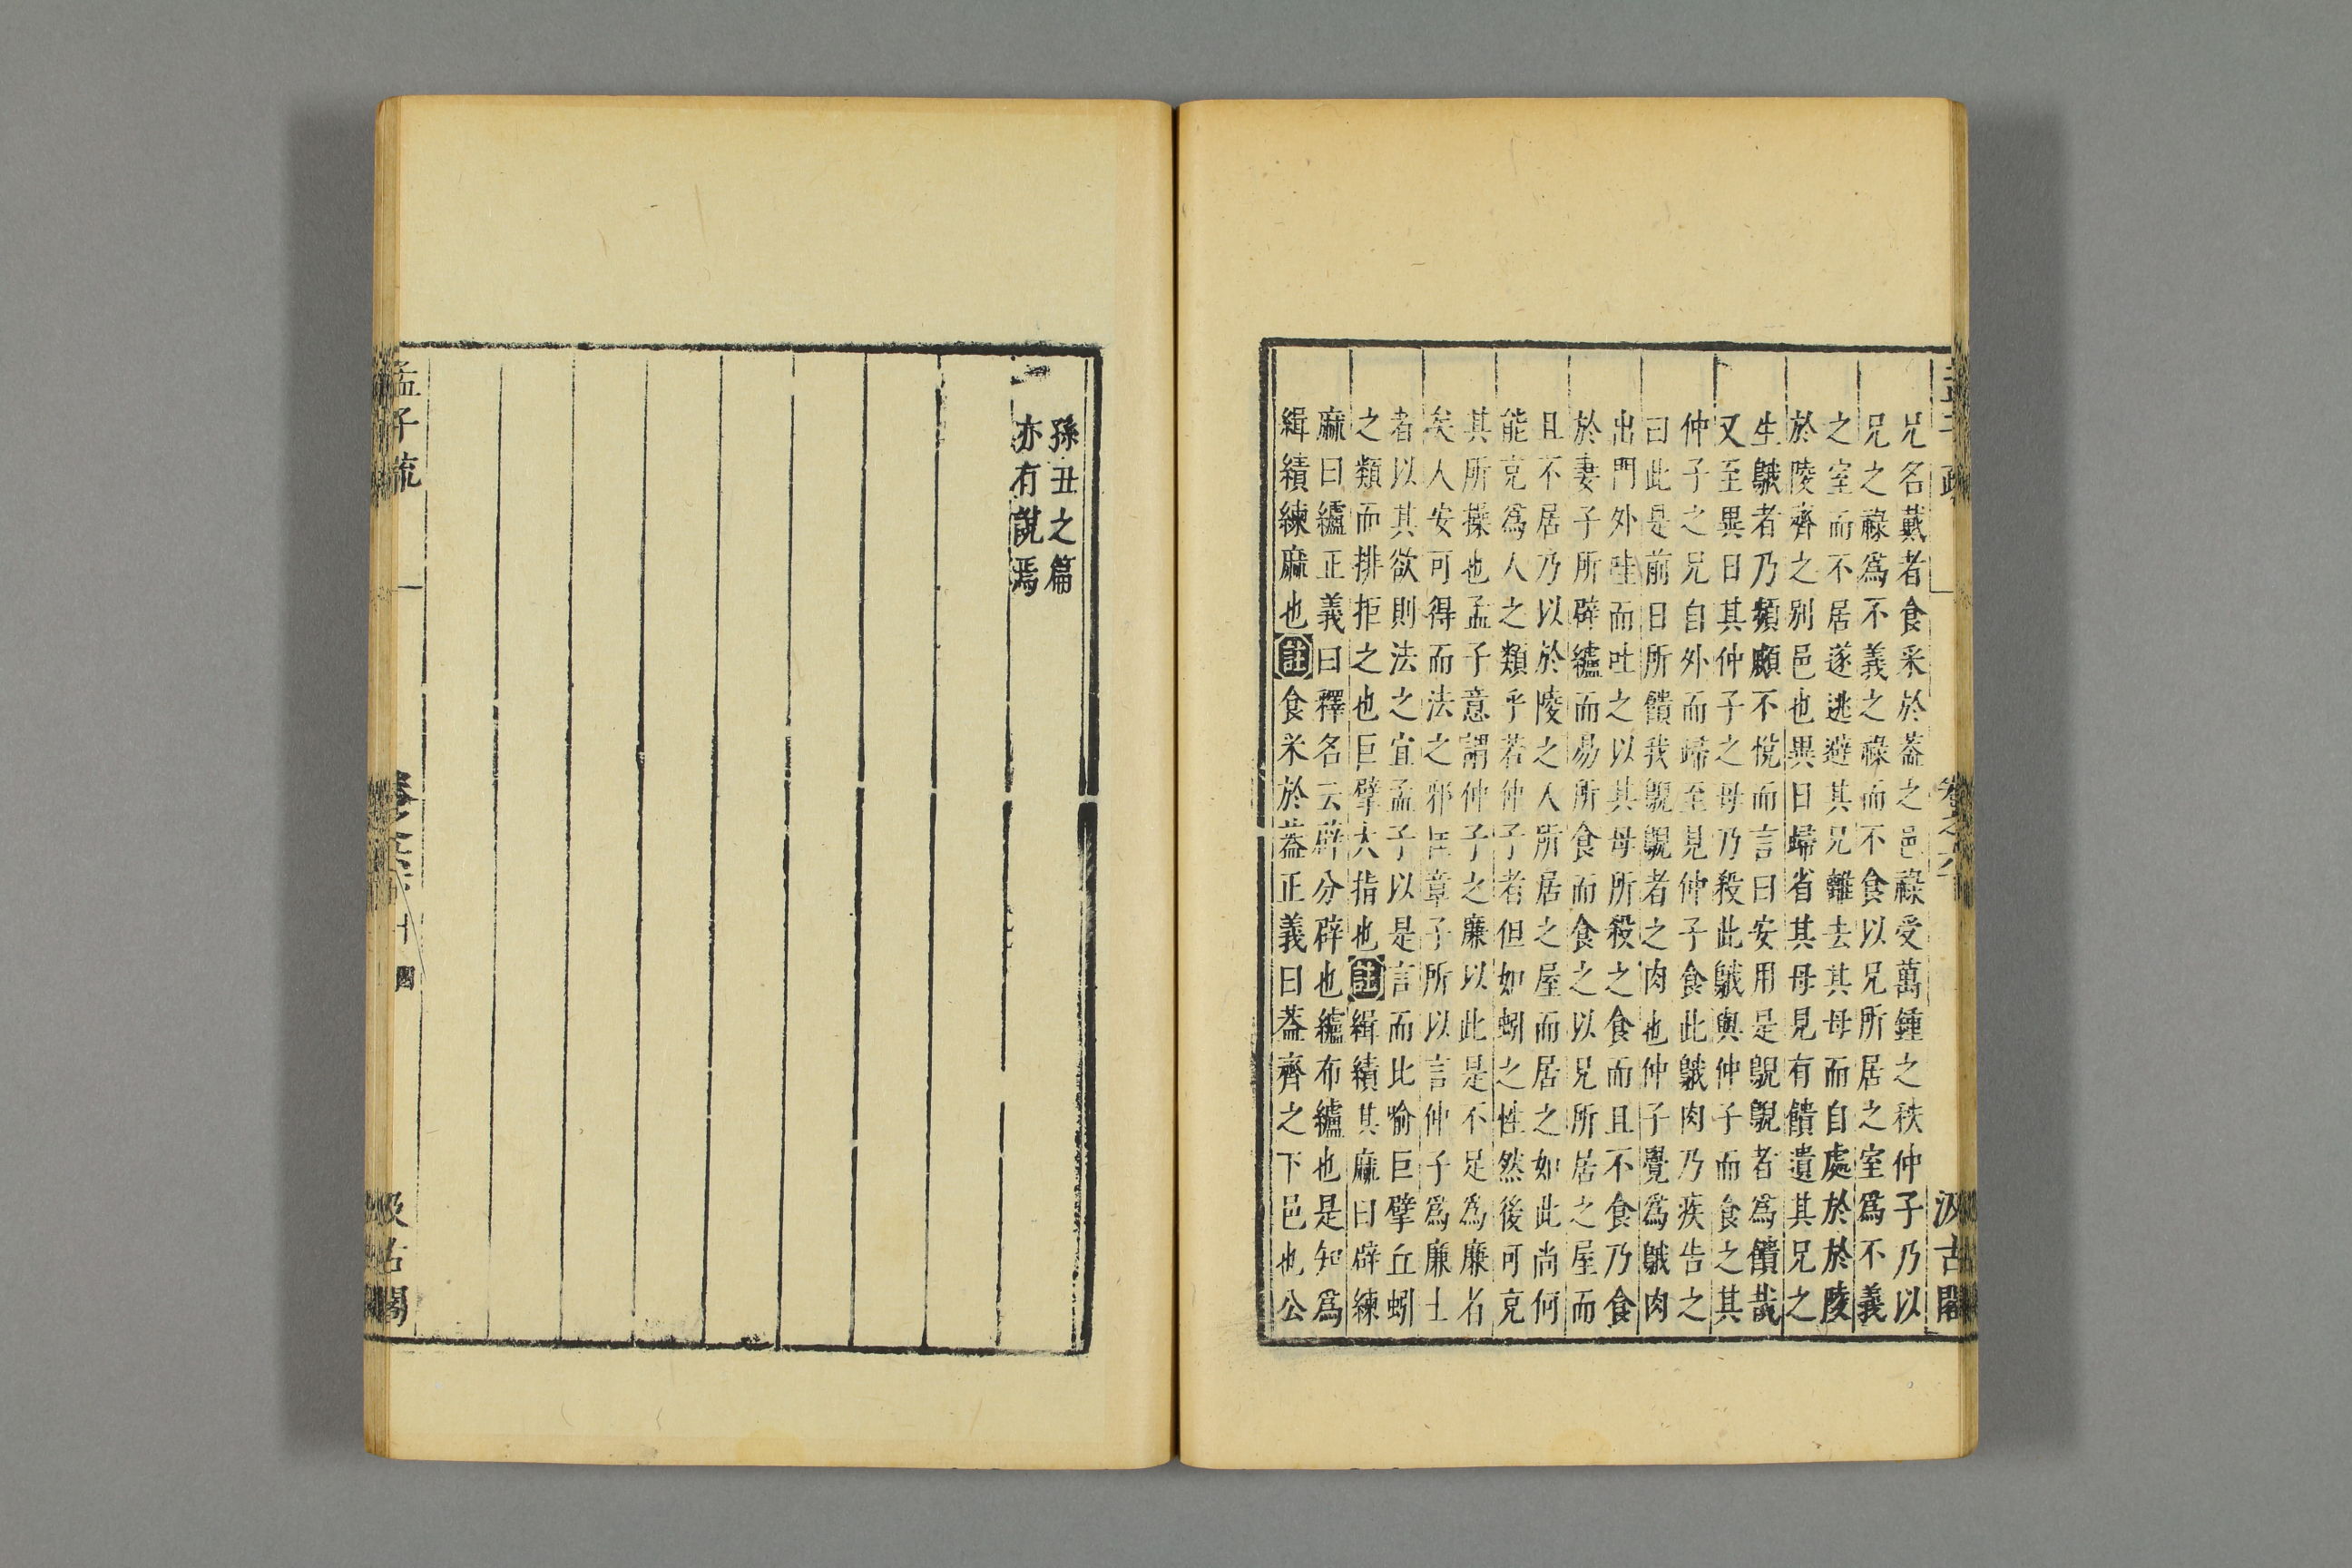 兄名戴者食采於葢之邑祿受萬鍾之秩仲子乃以
兄之祿爲不義之祿而不食以兄所居之室爲不義
之室而不居遂逃避其兄離去其母而自處於於陵
於陵齊之別邑也異日歸省其母見有饋遺其兄之
生鵝者乃頻顣不悅而言曰安用是鶂鶂者爲饋哉
又至異日其仲子之母乃殺此鵝與仲子而食之其
仲子之兄自外而歸至見仲子食此鵝肉乃疾告之
曰此是前日所饋我鶂鶂者之肉也仲子覺爲鵝肉
出門外哇而吐之以其母所殺之食而且不食乃食
於妻子所辟纑而易所食而食之以兄所居之屋而
且不居乃以於陵之人所居之屋而居之如此尚何
能克爲人之類乎若仲子者但如蚓之性然後可克
其所操也孟子意謂仲子之廉以此是不足爲廉者
矣人安可得而法之邪匡章子所以言仲子爲廉士
者以其欲則法之宜孟子以是言而比喻巨擘丘蚓
之類而排拒之也巨擘大指也註緝績其麻曰辟練
麻曰纑正義曰釋名云辟分辟也纑布纑也是知爲
緝績練麻也註食采於葢正義曰葢齊之下邑也公
孟子疏 卷之六 汲古閣
孫丑之篇
亦有說焉
孟子疏 卷之六 十四 汲古閣